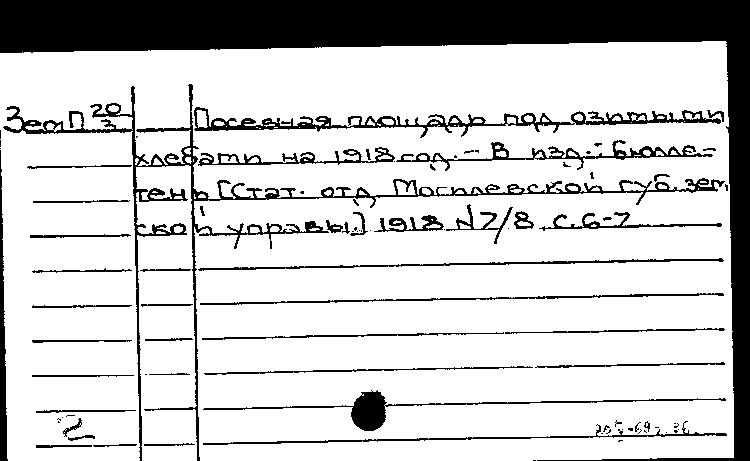 ЗемП 20/3 Посевная площадь под озимыми
хлебами на 1918 год. – В изд.: Бюлле-
тень [Стат. отд. Могилевской губ. зем.
ской управы.] 1918 №7/8 с. 6-7
2